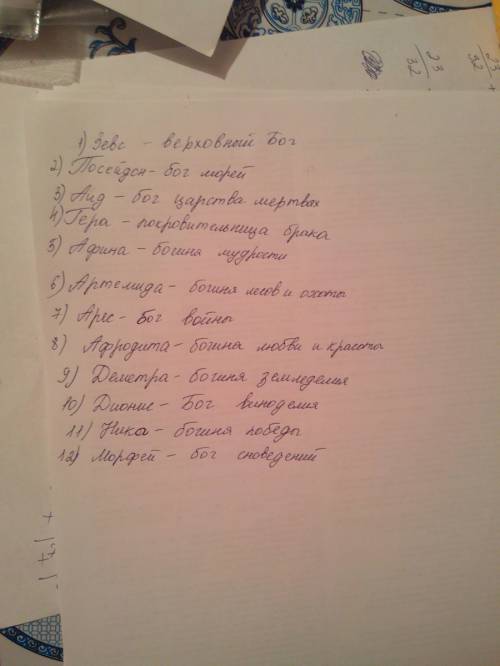 1) Зевс - верховный Бог
2) Посейдон - бог морей
3) Аид - бог царства мертвых
4) Гера - покровительница брака
5) Афина - богиня мудрости
6) Артемида - богиня лесов и охоты
7) Арес - Бог войны
8) Афродита - богина любви и красоты
9) Деметра - богиня земледелия
10) Дионис - Бог виноделия
11) Ника - богиня победы
12) Морфей - бог сноведений
23
32
23
32